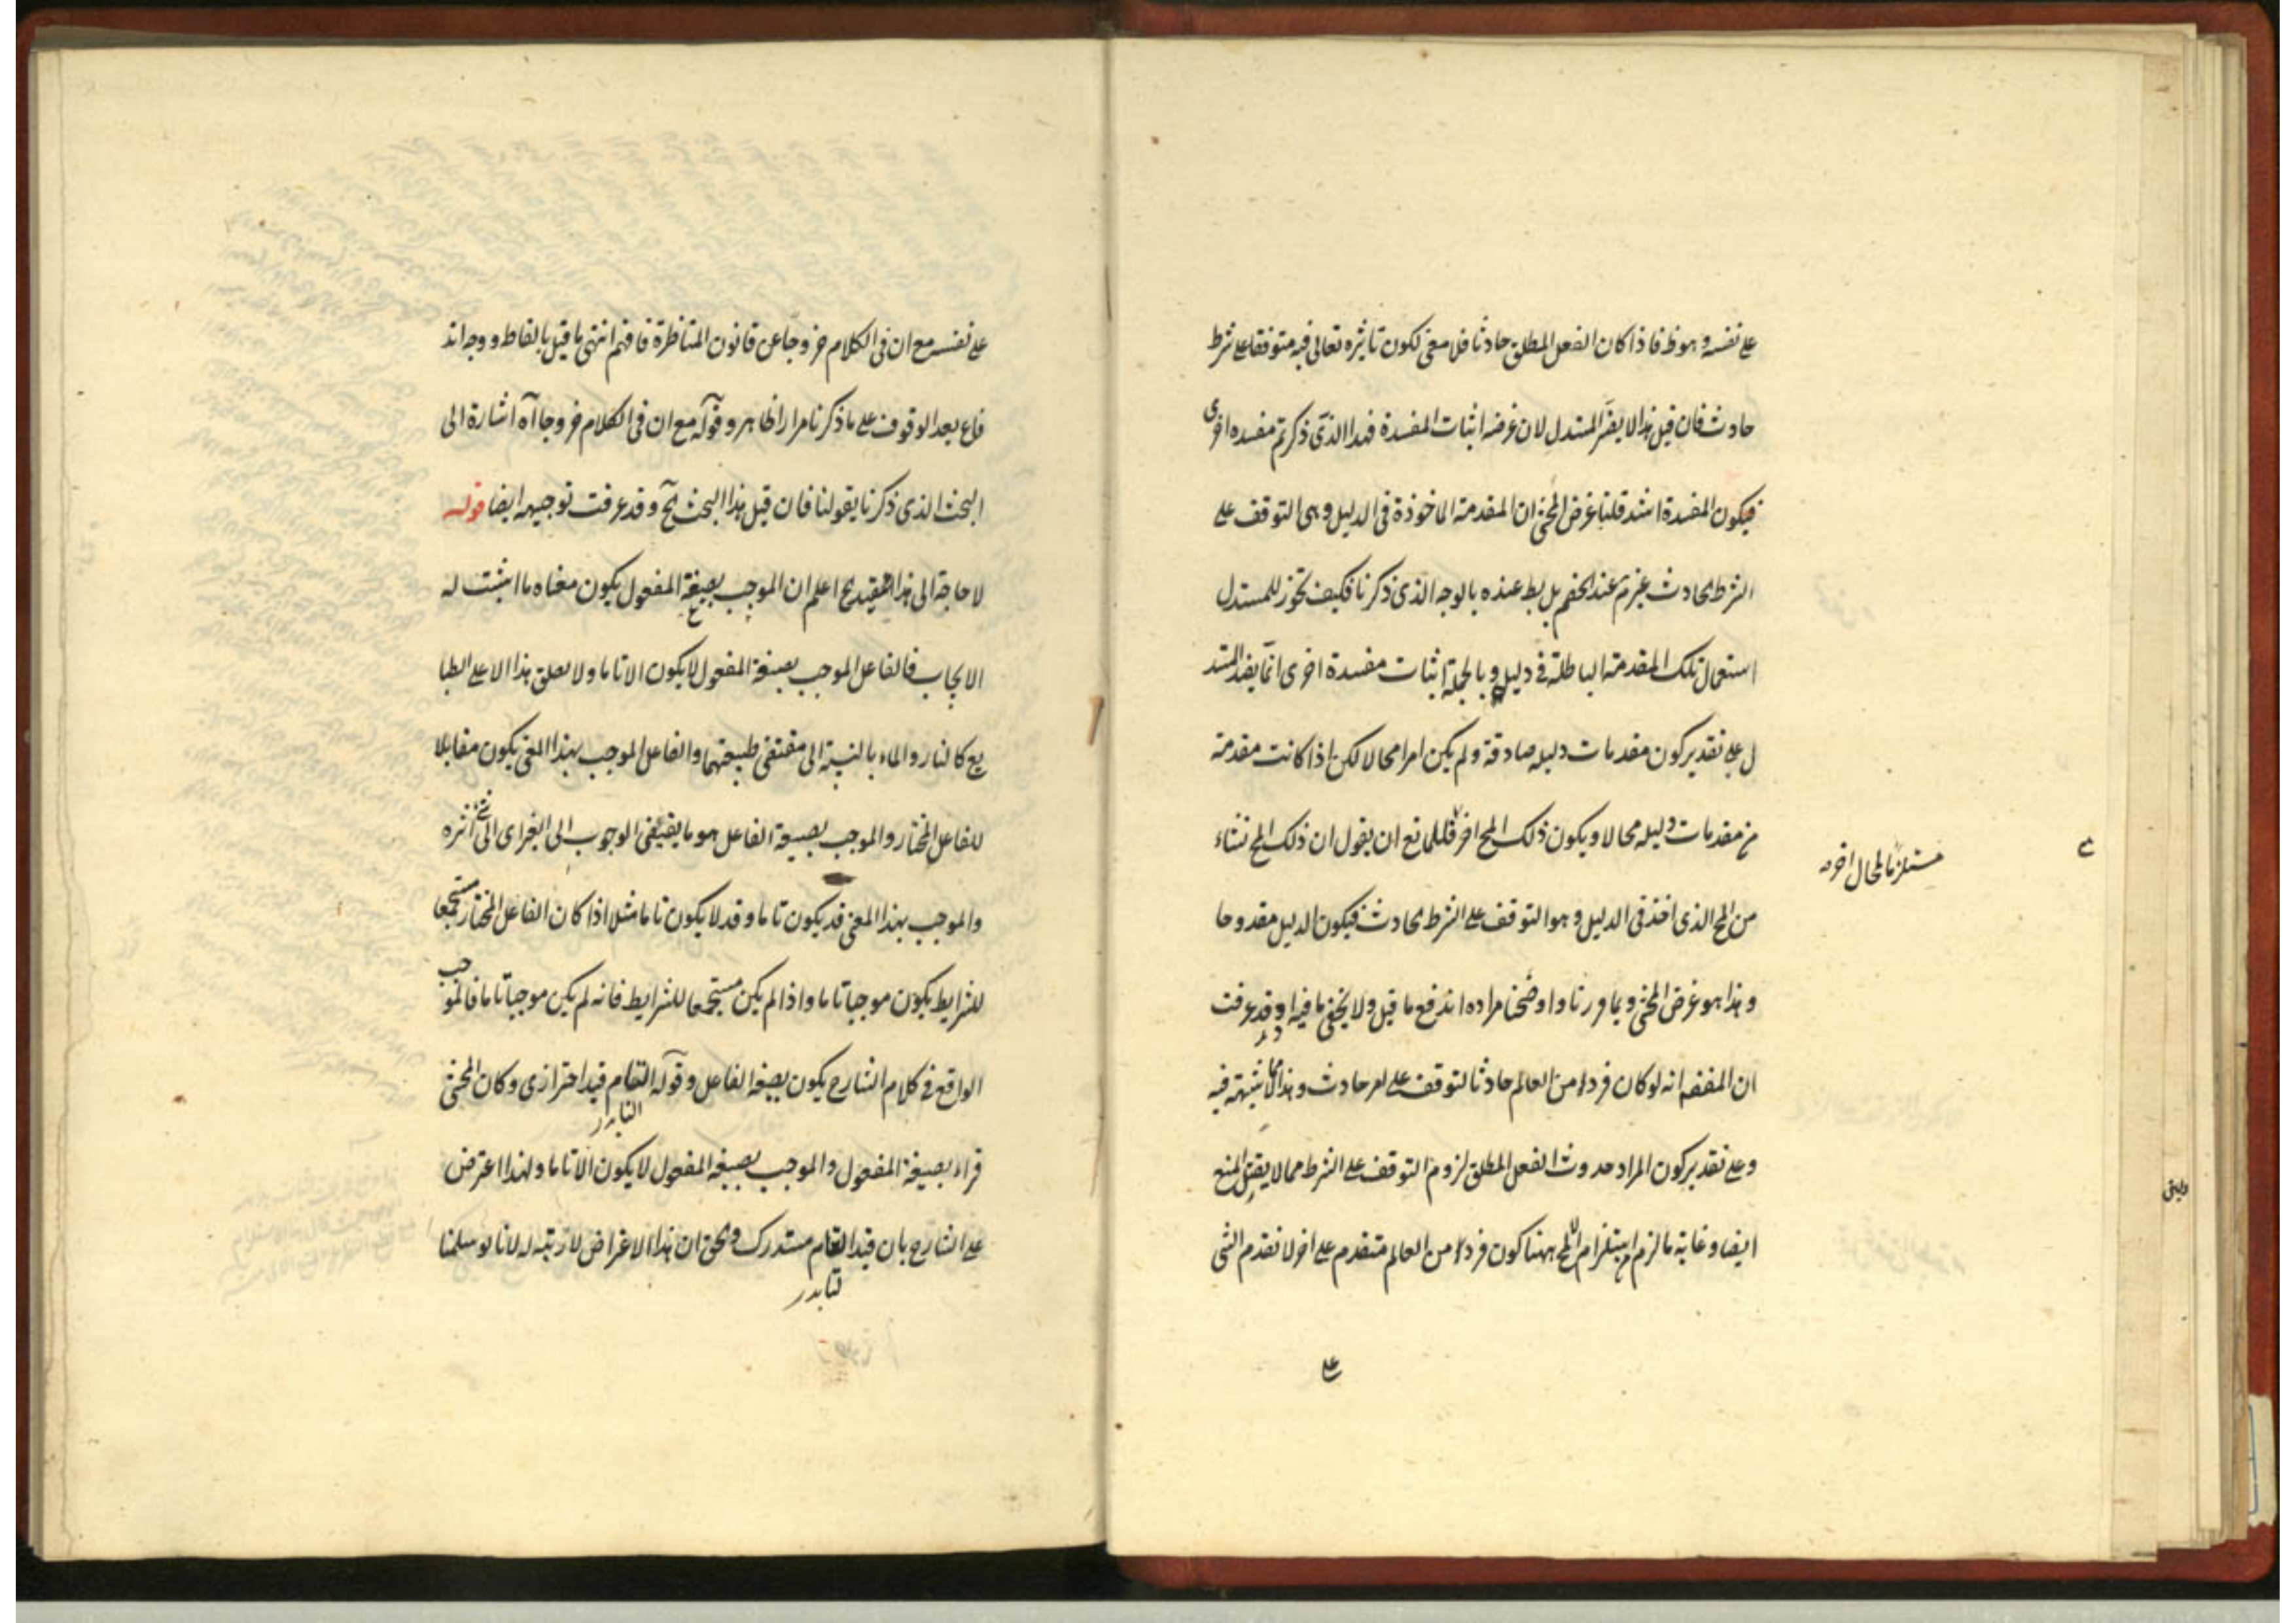 على نفسه وهو ظ فاذا كان الفعل المطلق حادثا فلا معنى لكون تاثيره تعالى فيه متوقفا على شرط
حادث فان قيل هذا لا يضر المستدل لان غرضه اثبات المفسدة فهذا الذى ذكرتم مفسدة اخرى
فيكون المفسدة اشد قلنا غرض المحشى ان المقدمة الماخوذة فى الدليل وهى التوقف على
الشرط الحادث غير م عند الخصم بل بط عنده بالوجه الذى ذكرنا فكيف تجوز للمستدل
استعمال تلك المقدمة الباطلة فى دليله وبالجملة اثبات مفسدة اخرى انما يفيد المستد
ل على تقدير كون مقدمات دليله صادقة ولم يكن امرا محالا لكن اذا كانت مقدمة
من مقدمات دليله محالا ويكون ذلك المح اخر فللمانع ان يقول ان ذلك المح نشاء
مستلزما لمحال اخر
من المح الذى اخذ فى الدليل وهو التوقف على الشرط الحادث فيكون الدليل مقدوحا
وهذا هو غرض المحشى وبما قررنا واوضحنا مراده اندفع ما قيل ولا يخفى ما فيه اقد عرفت
ان المفهم انه لو كان فردا من العالم حادثا لتوقف على امر حادث وهذا مما لا شبهة فيه
وعلى تقدير كون المراد حدوث الفعل المطلق لزوم التوقف على الشرط مما لا يقبل المنع
ايضا وغاية ما لزم استلزام المح ههنا كون فردا من العالم متقدم على اخر لا تقدم الشى
على
على نفسه مع ان فى الكلام خروجا عن قانون المناظرة فافهم انتهى ما قيل بالفاظه ووجه اند
فاعه بعد الوقوف على ما ذكرنا مرارا ظاهر وقوله مع ان فى الكلام خروجا آه اشارة الى
البحث الذى ذكرنا بقولنا فان قيل هذا البحث آخ وقد عرفت توجيهه ايضا قوله
لا حاجة الى هذا التقييد آخ اعلم ان الموجب بصيغة المفعول يكون معناه ما اثبت له
الايجاب فالفاعل الموجب بصيغة المفعول لا يكون الا تاما ولا يطلق هذا الا على الطبا
يع كالنار والماء بالنسبة الى مقتضى طبيعتهما والفاعل الموجب بهذا المعنى يكون مقابلا
للفاعل المختار والموجب بصيغة الفاعل هو ما يقتضى الوجوب الى الغير اى الى شئ اثره
والموجب بهذا المعنى قد يكون تاما وقد لا يكون تاما مثلا اذا كان الفاعل المختار مستجمعا
للشرايط يكون موجبا تاما واذا لم يكن مستجمعا للشرايط فانه لم يكن موجبا تاما فالموجب
الواقع فى كلام الشارح يكون بصيغة الفاعل وقوله التام قيد احترازى وكان المحشى
قراء بصيغة المفعول والموجب بصيغة المفعول لا يكون الا تاما ولهذا اعترض
على الشارح بان قيد التام مستدرك والحق ان هذا الاعتراض لا رتبة له لانا لو سلمنا